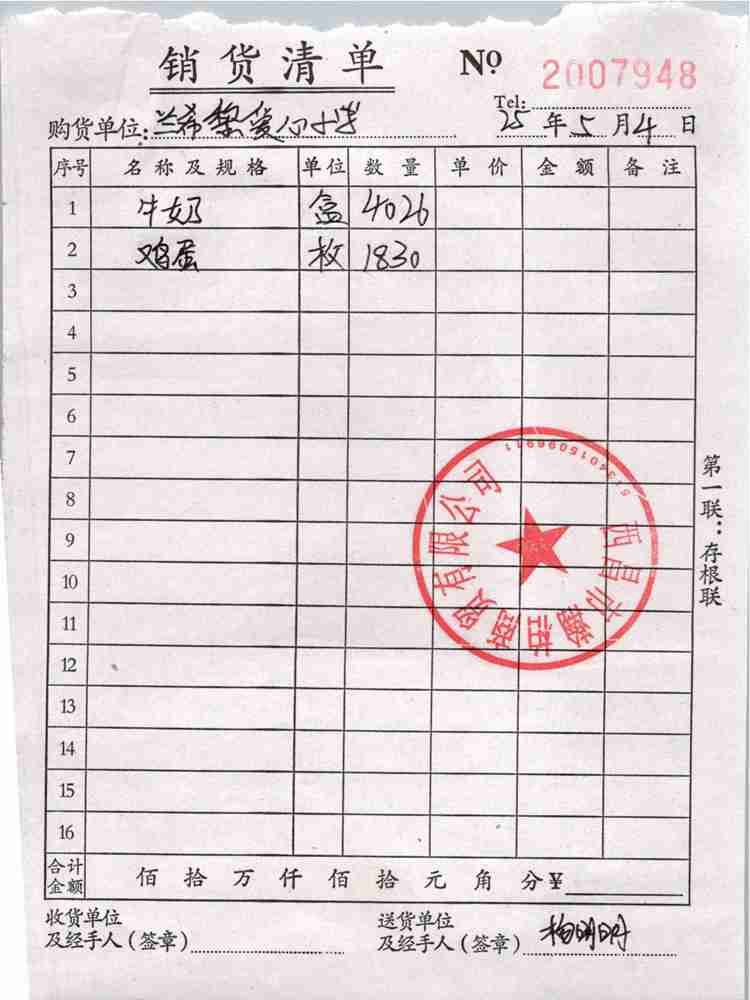 销货清单 Nº 2007948
Tel:
购货单位: 兰希黎爱心小学 25年5月4日
序号 名称及规格 单位 数量 单价 金额 备注
1 牛奶 盒 4026
2 鸡蛋 枚 1830
3
4
5
6
7
8
9
10
11
12
13
14
15
16
合计金额 佰拾万仟佰拾元角分¥
收货单位 送货单位
及经手人(签章) 及经手人(签章) 杨明明
第一联:存根联
西昌市 贸有限公司